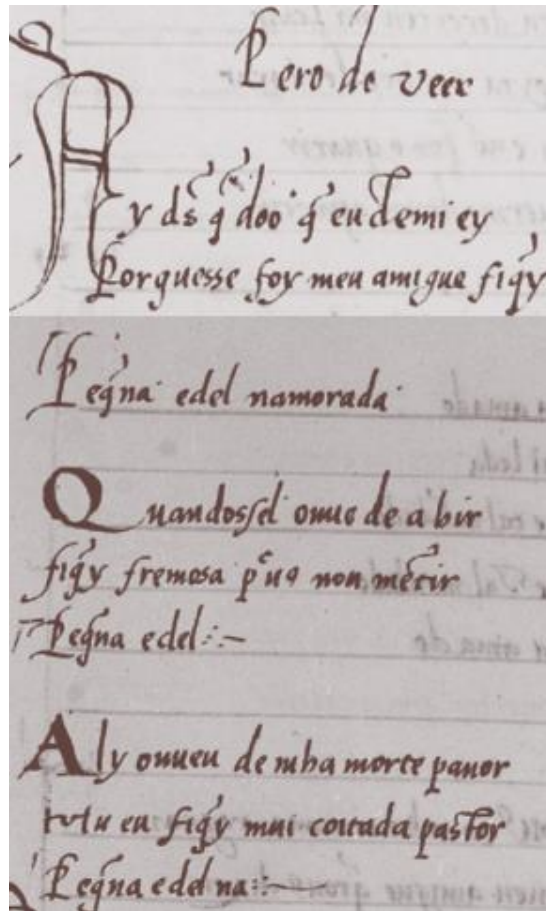 Pero de Veer
Ay ds̃ q̃ doo q̃ eu demi ey
Porquesse foy meu amigue fiq̃y
Peq̃na edel namorada
Quandossel ouue de a bir
fiq̃y fremosa por uꝯ non mẽtir
Peq̃na edel :~
Aly ouueu de mha morte pauor
hu eu fiq̃y mui coitada pastor
Peq̃na edel na :~